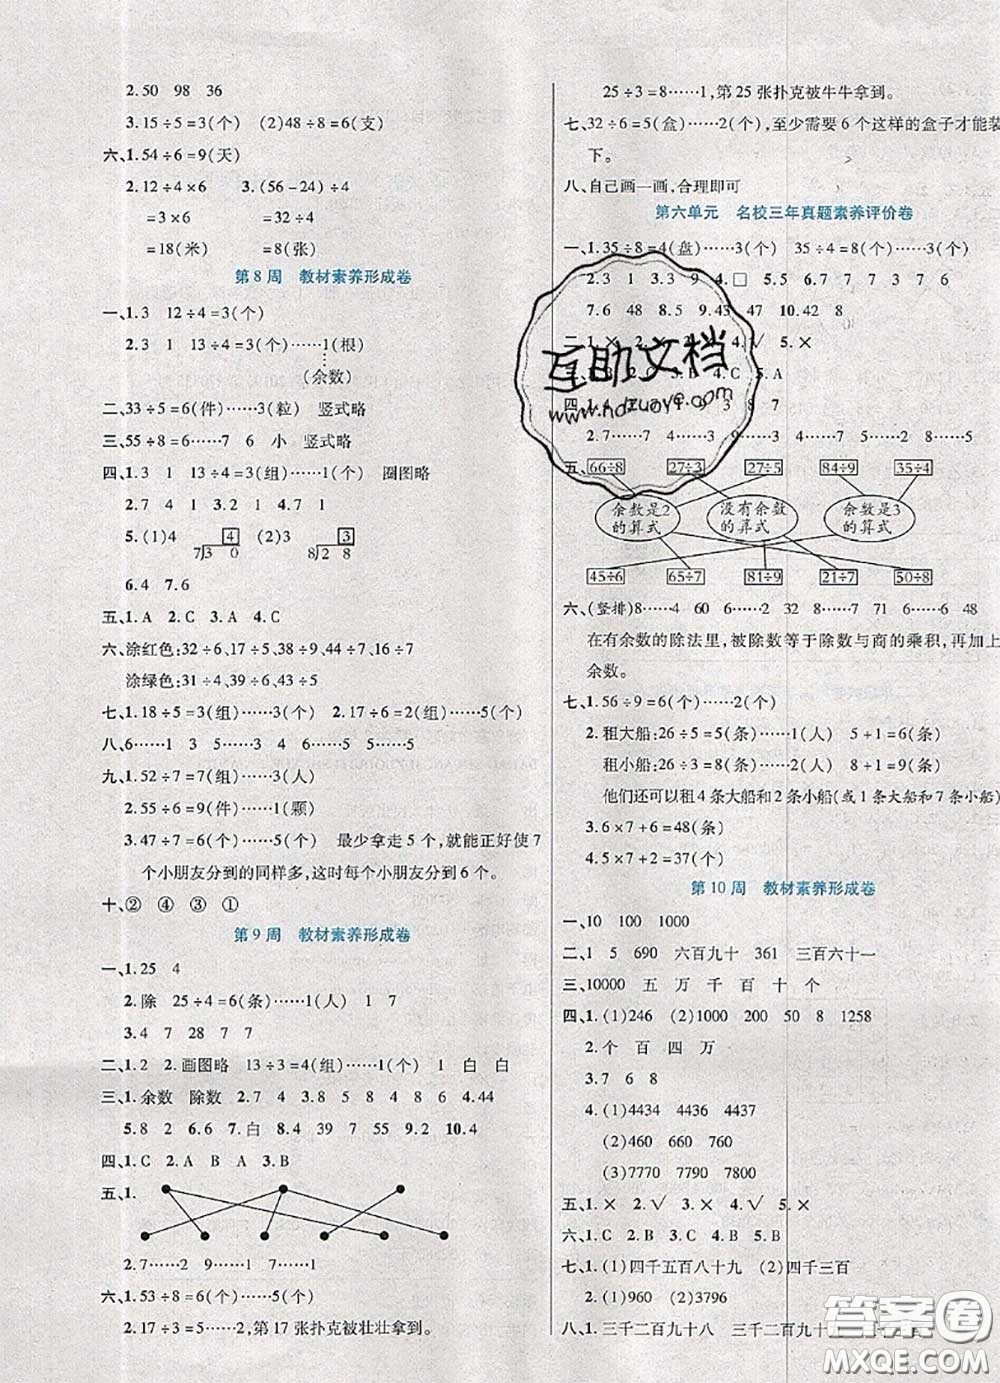 2.50 98 36
3.15÷5=3(个) (2)48÷8=6(支)
六、1.54÷6=9(天)
2.12÷4×6 3.(56-24)÷4
=3×6 =32÷4
=18(米) =8(张)
第8周 教材素养形成卷
一、1.3 12÷4=3(个)
2.3 1 13÷4=3(个)……1(根)
(余数)
二、33÷5=6(件)……3(粒) 竖式略
三、55÷8=6……7 6 小 竖式略
四、1.3 1 13÷4=3(组)……1(个) 圈图略
2.7 4 1 3.2 1 4.7 1
5.(1)4 4 (2)3 3
7 3 0 8 2 8
6.4 7.6
五、1.A 2.C 3.A 4.C
六、涂红色:32÷6、17÷5、27÷5、16÷7
涂绿色:31÷4、39÷6、27÷4、51÷8
七、1.18÷5=3(组)……3(个) 2.17÷6=2(组)……5(个)
八、6……1 3 5……3 6……5 5……5
九、1.52÷7=7(组)……3(人)
2.55÷6=9(组)……1(颗)
3.47÷7=6(个)……5(个) 最少拿走5个,就能正好使7
个小朋友分到的同样多,这时每个小朋友分到6个。
十、② ④ ③ ①
第9周 教材素养形成卷
一、1.25 4
2.除 25÷4=6(条)……1(人) 1 7
3.4 7 28 7 7
二、1.2 2.画图略 13÷3=4(组)……1(个) 1 白 白
三、1.余数 除数 2.7 4 3.8 5 8 4 8 6 4.44
5.8 2 6.6 7.白 8.4 39 9.2 10.4
四、1.C 2.A B A 3.B
五、1.
2.7……2 9……1 7……1
六、1.53÷8=6(个)……5(个)
2.17÷3=5……2,第17张扑克被壮壮拿到。
25÷3=8……1,第25张扑克被牛牛拿到。
七、32÷6=5(盒)……2(个),至少需要6个这样的盒子才能装
下。
八、自己画一画,合理即可
第六单元 名校三年真题素养评价卷
一、1.35÷8=4(盘)……3(个) 35÷4=8(个)……3(个)
2.3 1 3.9 4.□ 5.5 6.7 7 7 3 7 6
7.6 48 8.5 9.43 47 10.42 8
二、1.× 4.√ 5.×
C 5.A
四、1. 3 8 7
2.7……7 4……3 9……7 4……5 9……2 6……5
五、66÷8 27÷3 27÷5 84÷9 35÷4
余数是2的算式 没有余数的算式 余数是3的算式
45÷6 65÷7 81÷9 21÷7 50÷8
六、(竖排)8……4 60 6……2 32 8……7 71 6……6 48
在有余数的除法里,被除数等于除数与商的乘积,再加上
余数。
七、1.56÷9=6(个)……2(个)
2.租大船:26÷5=5(条)……1(人) 5+1=6(条)
租小船:26÷3=8(条)……2(人) 8+1=9(条)
他们还可以租4条大船和2条小船(或1条大船和7条小船)
3.6×7+6=48(条)
4.5×7+2=37(个)
第10周 教材素养形成卷
一、10 100 1000
二、1 5 690 六百九十 361 三百六十一
三、10000 五 万 千 百 十 个
四、1.(1)246 (2)1000 200 50 8 1258
2.个 百 四 万
3.7 6 8
4.(1)4434 4436 4437
(2)460 660 760
(3)7770 7790 7800
五、1.× 2.√ 3.× 4.√ 5.×
六、1.C 2.B 3.C 4.B 5.B
七、1.(1)四千五百八十九 (2)四千三百
2.(1)960 (2)3796
八、1.三千二百九十八 三千二百九十
互助文档
www.hdzuoye.com
答案圈
MXQE.COM